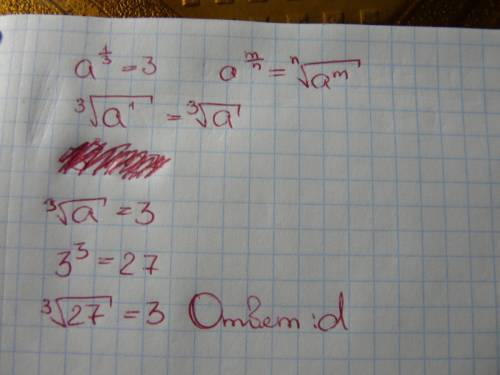 a^{\frac{1}{3}} = 3 a^{\frac{m}{n}} = \sqrt[n]{a^m}
\sqrt[3]{a^1} = \sqrt[3]{a}
\sqrt[3]{a} = 3
3^3 = 27
\sqrt[3]{27} = 3 Ответ: d